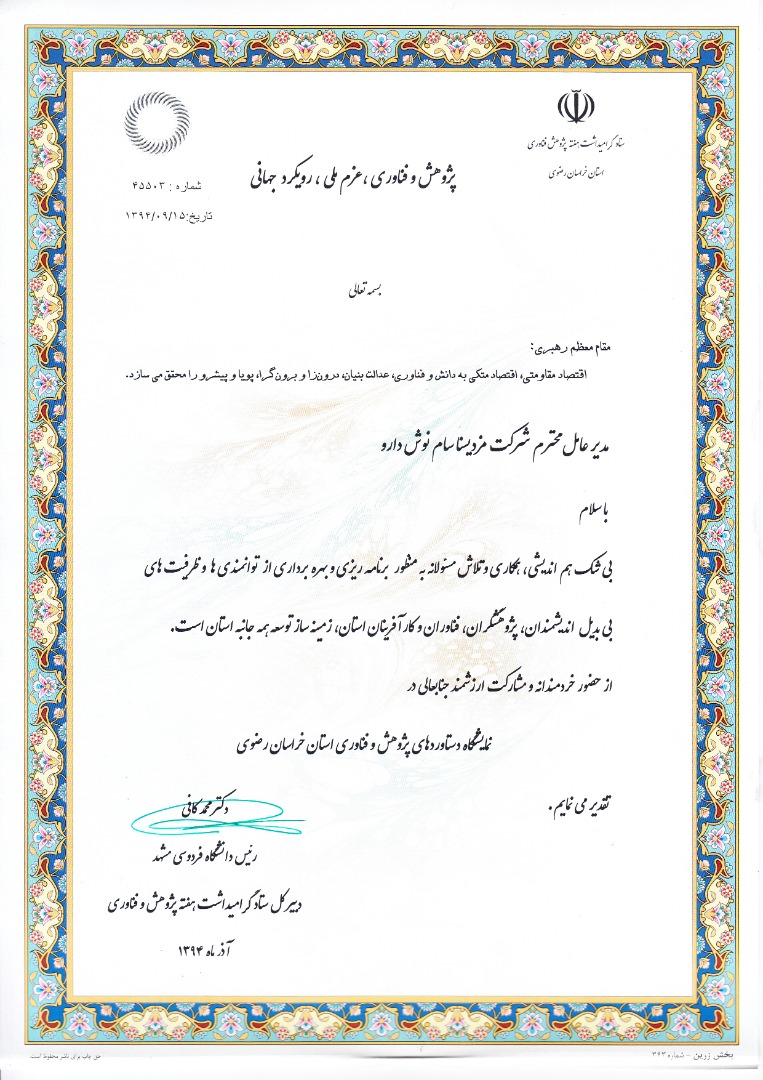 ستاد گرامیداشت هفته پژوهش و فناوری
استان خراسان رضوی
پژوهش و فناوری، عزم ملی، رویکرد جهانی
شماره : ۴۵۵۰۳
تاریخ:۱۳۹۴/۰۹/۱۵
بسمه تعالی
مقام معظم رهبری:
اقتصاد مقاومتی، اقتصاد متکی به دانش و فناوری، عدالت بنیان، درون‌زا و برون‌گرا، پویا و پیشرو را محقق می سازد.
مدیر عامل محترم شرکت مزدیسنا سام نوش دارو
با سلام
بی شک هم اندیشی، همکاری و تلاش مسئولانه به منظور برنامه ریزی و بهره برداری از توانمندی ها و ظرفیت های
بی بدیل اندیشمندان، پژوهشگران، فناوران و کارآفرینان استان، زمینه ساز توسعه همه جانبه استان است.
از حضور خردمندانه و مشارکت ارزشمند جنابعالی در
نمایشگاه دستاوردهای پژوهش و فناوری استان خراسان رضوی
تقدیر می نمایم.
دکتر محمد کافی
رئیس دانشگاه فردوسی مشهد
دبیر کل ستاد گرامیداشت هفته پژوهش و فناوری
آذر ماه ۱۳۹۴
پخش زرین - شماره ۳۶۳
حق چاپ برای ناشر محفوظ است.